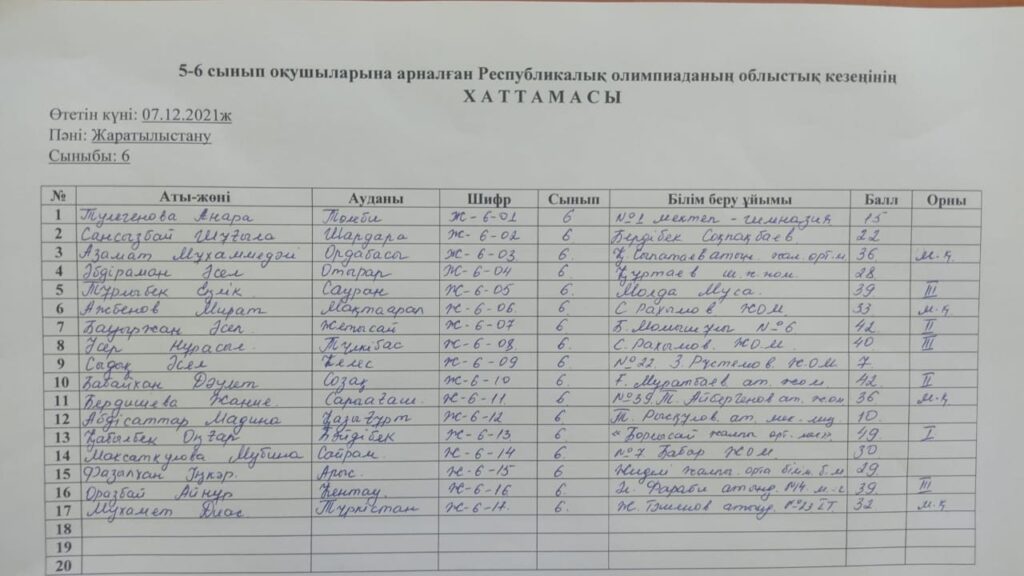 5-6 сынып оқушыларына арналған Республикалық олимпиаданың облыстық кезеңінің
ХАТТАМАСЫ
Өтетін күні: 07.12.2021ж
Пәні: Жаратылыстану
Сыныбы: 6
№ Аты-жөні Ауданы Шифр Сынып Білім беру ұйымы Балл Орны
1 Тулегенова Анара Төлеби Ж-6-01 6 №1 мектеп-гимназия 15
2 Сансызбай Шұғыла Шардара Ж-6-02 6. Бердібек Соқпақбаев 22
3 Азамат Мұхаммедәлі Ордабасы Ж-6-03 6. 36 м.қ
4 Әбдіраман Әсел Отырар Ж-6-04 6. Құртаев 28
5 Тұрлыбек Еңлік Сауран Ж-6-05 6 Молда Мұса. 39 III
6 Ажбенов Мират Мақтаарал Ж-6-06. 6. С. Рахымов. ЖОМ. 33 м.қ
7 Бауыржан Әсел. Жетысай Ж-6-07 6. Б. Момышұлы №6 42 II
8 Әсер Нұрасыл. Түлкібас Ж-6-08 6. С. Рахымов. ЖО.М. 40 III
9 Сыдық Әсел Келес Ж-6-09 6. №22. З. Рүстемов. ЖОМ 7.
10 Бабайхан Дәулет Созақ Ж-6-10 6. Ғ. Мұратбаев ат. жом. 42 II
11 Бердишева Жание. Сарыағаш. Ж-6-11. 6. №39. Т. Айбергенов ат. жом 36 м.қ
12 Абдісаттар Мадина Қазығұрт Ж-6-12 6. Т. Рысқулов. ат. 10
13 Қабылбек Оңғар Бәйдібек Ж-6-13. 6. жалпы орт. 49 I
14 Максаткулова Мубина Сайрам. Ж-6-14 6. №7 Бабыр ЖОМ. 30
15 Фазылхан Арыс. Ж-6-15 6. Жиделі жалпы орта білім б.м 29
16 Оразбай Айнұр Кентау. Ж-6-16 6. Фараби атынд. №4. м-г 39 III
17 Мұхамет Диас Түркістан Ж-6-17. 6. атынд. №23 IT. 32 м.қ
18
19
20